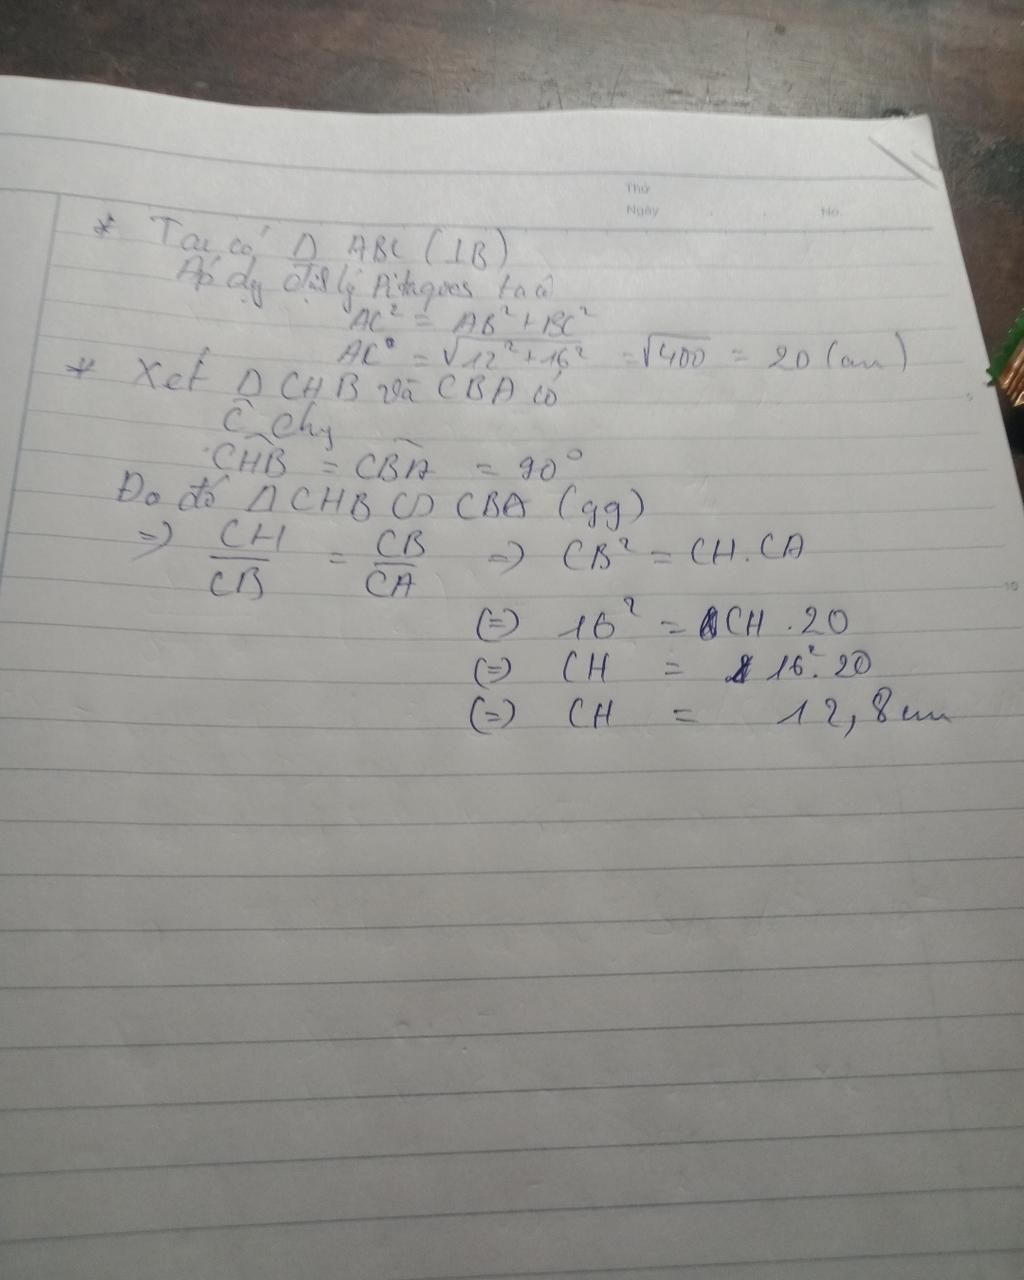 Thứ
Ngày No.
* Ta có Δ ABC (⊥B)
Áp dg định lý Pitagoes ta có
AC² = AB² + BC²
AC = √12² + 16² = √400 = 20 (cm)
* Xét Δ CHB và CBA có
Ĉ chg
CHB = CBA = 90°
Do đó Δ CHB ∽ CBA (gg)
=> CH/CB = CB/CA => CB² = CH.CA
(=) 16² = CH . 20
(=) CH = 16² : 20
(=) CH = 12,8 cm
5
10